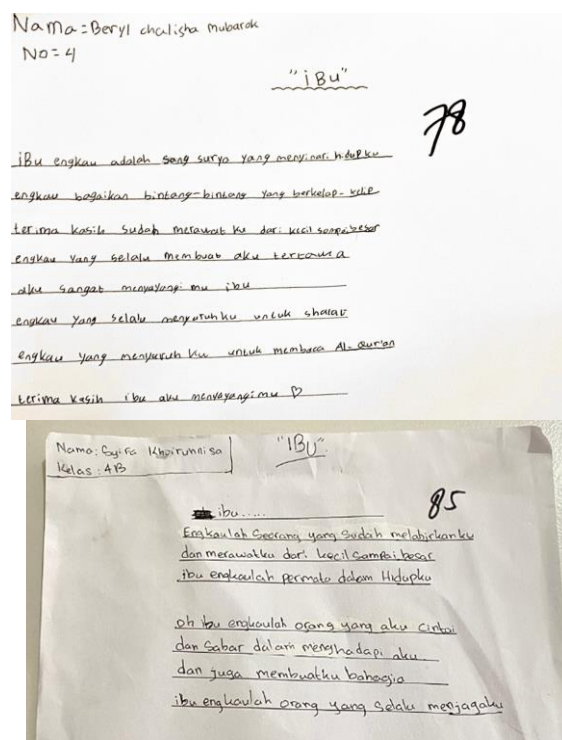 Nama = Beryl chalisha mubarok
No = 4
"iBu"
78
iBu engkau adalah sang surya yang menyinari hidupku
engkau bagaikan bintang-bintang yang berkelap-kelip
terima kasih sudah merawat ku dari kecil sampai besar
engkau yang selalu membuat aku tertawa
aku sangat menyayangi mu ibu
engkau yang selalu menyuruhku untuk shalat
engkau yang menyuruh ku untuk membaca AL-Qur'an
terima kasih ibu aku menyayangimu ♡
Nama: Syifa Khoirunnisa
Kelas : 4B
"IBU"
85
ibu.....
Engkaulah Seorang yang sudah melahirkanku
dan merawatku dari kecil sampai besar
ibu engkaulah permata dalam Hidupku
oh ibu engkaulah orang yang aku cintai
dan Sabar dalam menghadapi aku
dan juga membuatku bahagia
ibu engkaulah orang yang selalu menjagaku